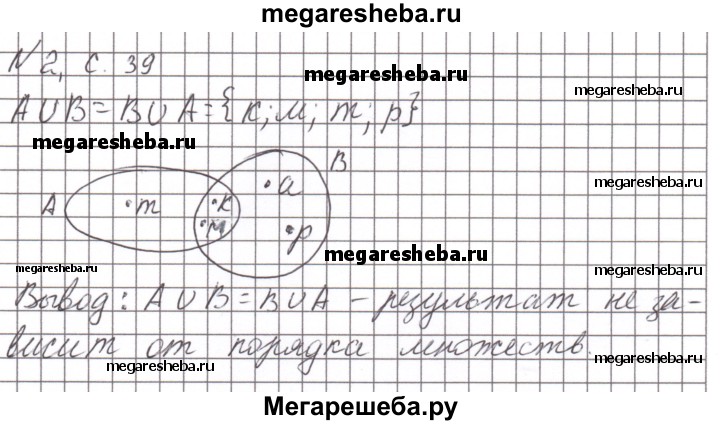 megaresheba.ru
N 2, с. 39
megaresheba.ru
megaresheba.ru
A∪B=B∪A={к; м; т; р}
megaresheba.ru
B
A
т
к
м
а
р
megaresheba.ru
megaresheba.ru
megaresheba.ru
Вывод: A∪B=B∪A – результат не за-
висит от порядка множеств.
megaresheba.ru
megaresheba.ru
Мегарешеба.ру